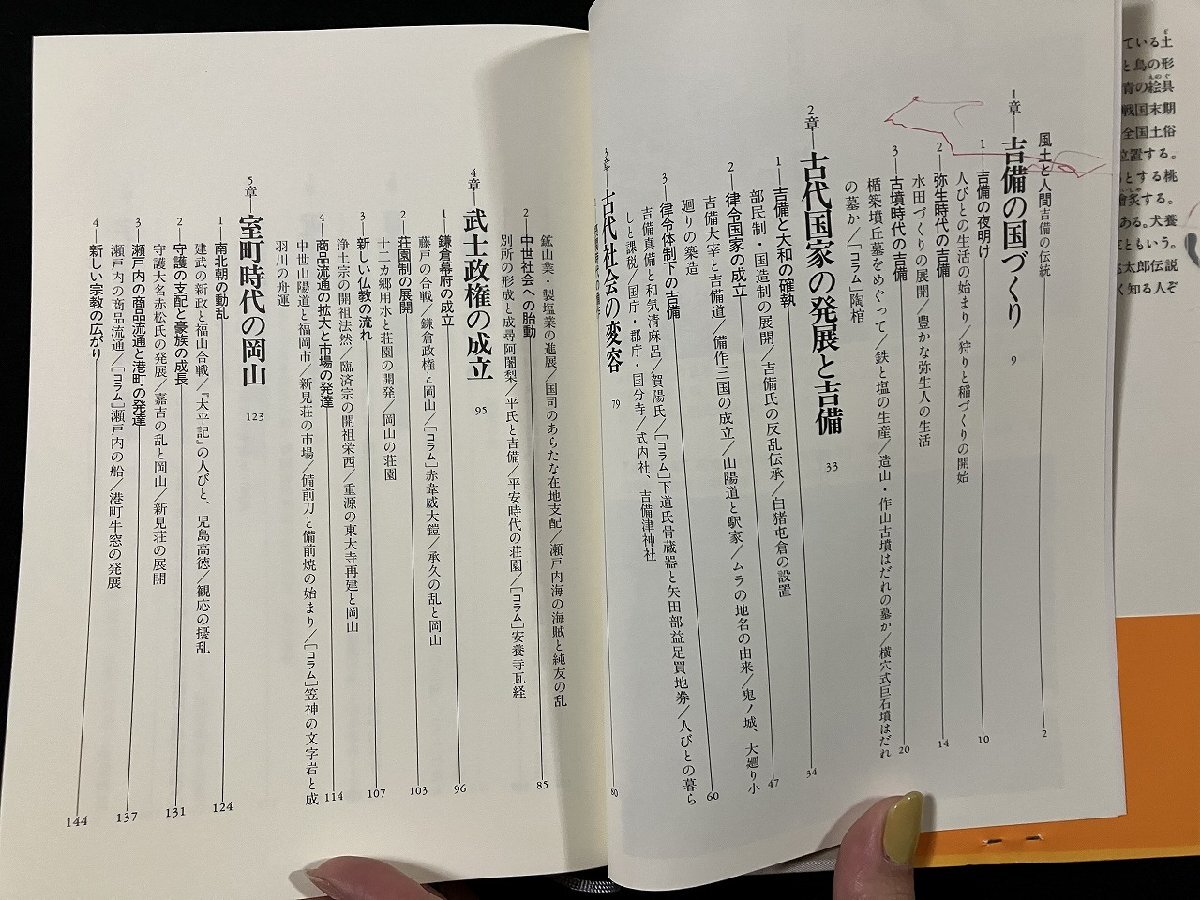 風土と人間 吉備の伝統 2
1章 吉備の国づくり 9
1 吉備の夜明け 10
人びとの生活の始まり/狩りと稲づくりの開始
2 弥生時代の吉備 14
水田づくりの展開/豊かな弥生人の生活
3 古墳時代の吉備 20
楯築墳丘墓をめぐって/鉄と塩の生産/造山・作山古墳はだれの墓か/横穴式巨石墳はだれ
の墓か/[コラム]陶棺
2章 古代国家の発展と吉備 33
1 吉備と大和の確執 34
部民制・国造制の展開/吉備氏の反乱伝承/白猪屯倉の設置
2 律令国家の成立 47
吉備大宰と吉備道/備作三国の成立/山陽道と駅家/ムラの地名の由来/鬼ノ城、大廻り小
廻りの築造
3 律令体制下の吉備 60
吉備真備と和気清麻呂/賀陽氏/[コラム]下道氏骨蔵器と矢田部益足買地券/人びとの暮ら
しと課税/国庁・郡庁・国分寺/式内社、吉備津神社
3章 古代社会の変容 79
80
鉱山業・製塩業の進展/国司のあらたな在地支配/瀬戸内海の海賊と純友の乱
2 中世社会への胎動 85
別所の形成と成尋阿闍梨/平氏と吉備/平安時代の荘園/[コラム]安養寺瓦経
4章 武士政権の成立 95
1 鎌倉幕府の成立 96
藤戸の合戦/鎌倉政権と岡山/[コラム]赤韋威大鎧/承久の乱と岡山
2 荘園制の展開 103
十二カ郷用水と荘園の開発/岡山の荘園
3 新しい仏教の流れ 107
浄土宗の開祖法然/臨済宗の開祖栄西/重源の東大寺再建と岡山
4 商品流通の拡大と市場の発達 114
中世山陽道と福岡市/新見荘の市場/備前刀と備前焼の始まり/[コラム]笠神の文字岩と成
羽川の舟運
5章 室町時代の岡山 123
1 南北朝の動乱 124
建武の新政と福山合戦/『太平記』の人びと、児島高徳/観応の擾乱
2 守護の支配と豪族の成長 131
守護大名赤松氏の発展/嘉吉の乱と岡山/新見荘の展開
3 瀬戸内の商品流通と港町の発達 137
瀬戸内の商品流通/[コラム]瀬戸内の船/港町牛窓の発展
4 新しい宗教の広がり 144
ている土
と鳥の形
青の絵具
戦国末期
全国土俗
位置する。
とする桃
膾炙する。
ある。犬養
ともいう。
太郎伝説
く知る人ぞ